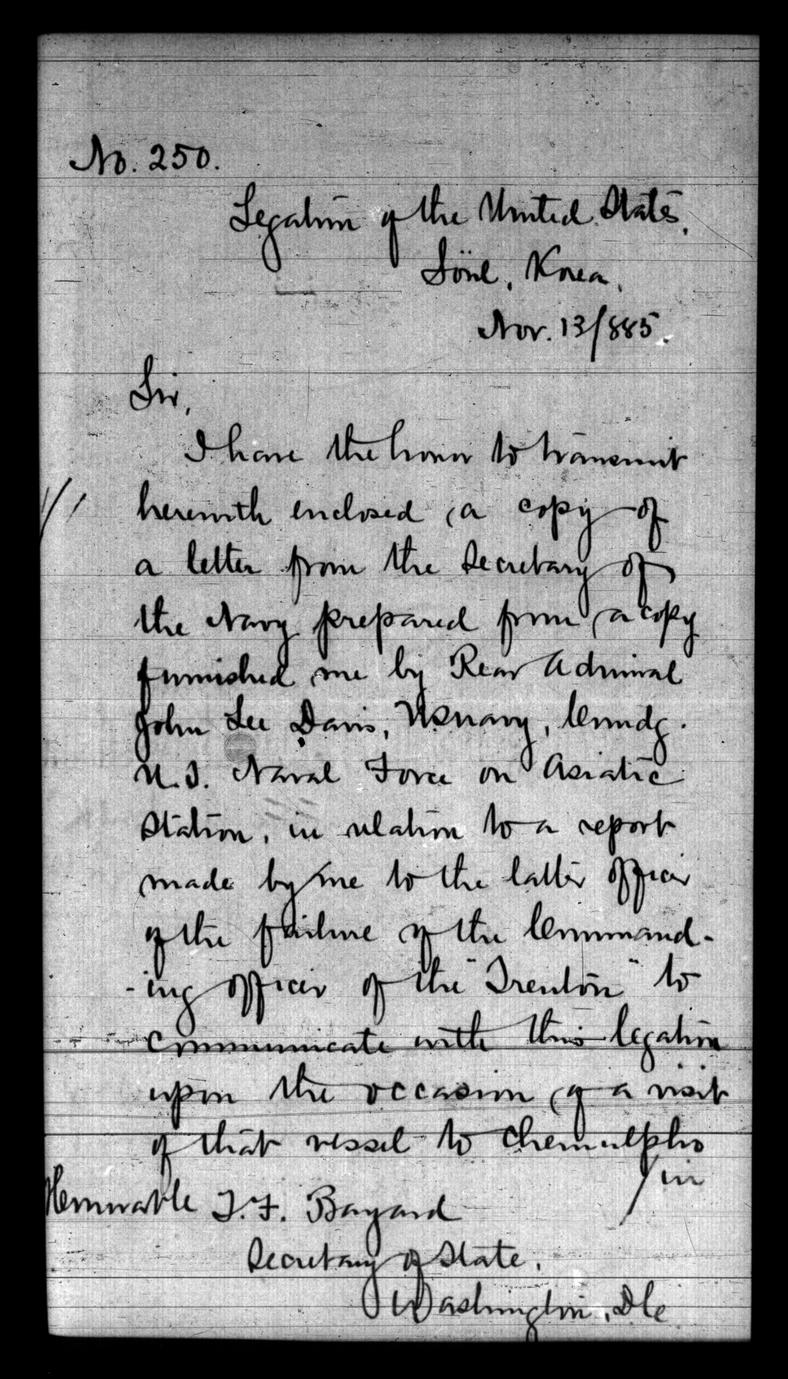 No. 250.
Legation of the United States,
Söul, Korea,
Nov. 13/885.
Sir,
I have the honor to transmit
herewith enclosed a copy of
a letter from the Secretary of
the Navy prepared from a copy
furnished me by Rear Admiral
John Lee Davis, U.S. Navy, Comdg.
U.S. Naval Force on Asiatic
Station, in relation to a report
made by me to the latter officer
of the failure of the Command-
-ing officer of the "Trenton" to
communicate with this legation
upon the occasion of a visit
of that vessel to Chemulpho
/in
Honorable T. F. Bayard
Secretary of State,
Washington, D.C.